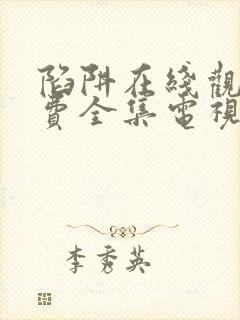 陷阱在綫觀
費全集電視
李秀英